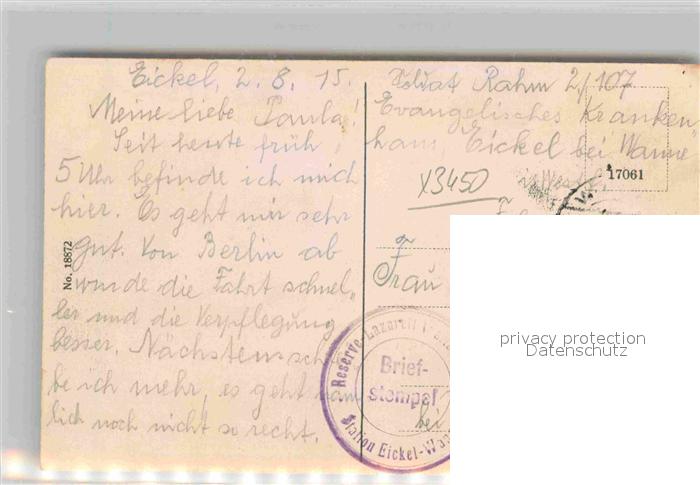 Eickel, 2. 8. 15.
Meine liebe Paula!
Seit heute früh
5 Uhr befinde ich mich
hier. Es geht mir sehr
gut. Von Berlin ab
wurde die Fahrt schnel„
ler und die Verpflegung
besser. Nächstens schrei
be ich mehr, es geht näm
lich noch nicht so recht.
No. 18872
Soldat Rahm 2/107
Evangelisches Kranken
haus, Eickel bei Wanne
in Westf.
X3450
17061
Frau
bei
Reserve-Lazarett
Brief-
stempel
Station Eickel-Wan
privacy protection
Datenschutz